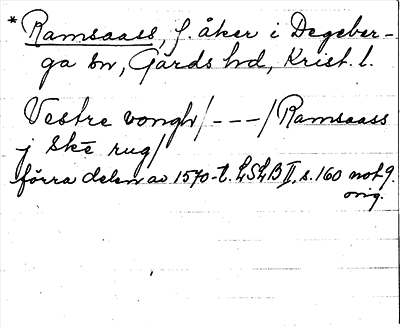 * Ramsaass, f. åker i Degeber-
ga sn, Gärds hd, Krist. l.
Vestre vongh/---/Ramsaass
j Skē rug/
förra delen av 1570-t. LSLB II, s. 160 not 9.
orig.